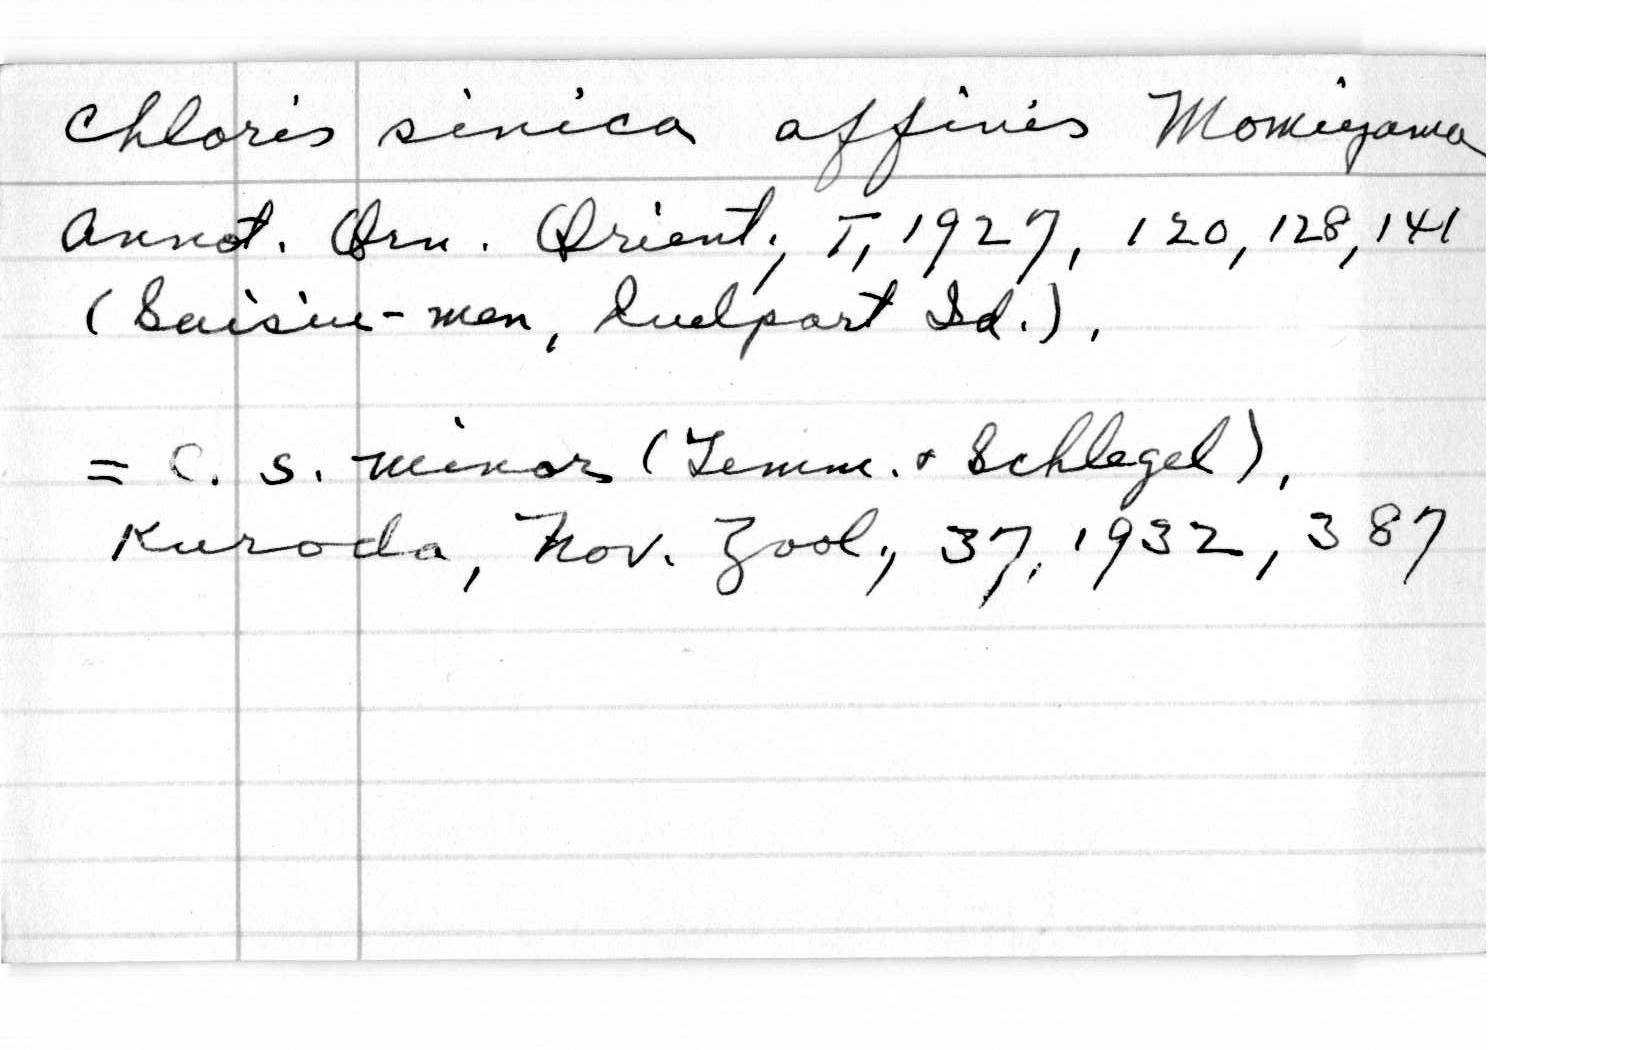 Chloris sinica affinis Momiyama
Annot. Orn. Orient., I, 1927, 120, 128, 141
(Saisiu-men, Quelpart Id.),
= C. s. minor (Temm. & Schlegel),
Kuroda, Nov. Zool., 37, 1932, 387